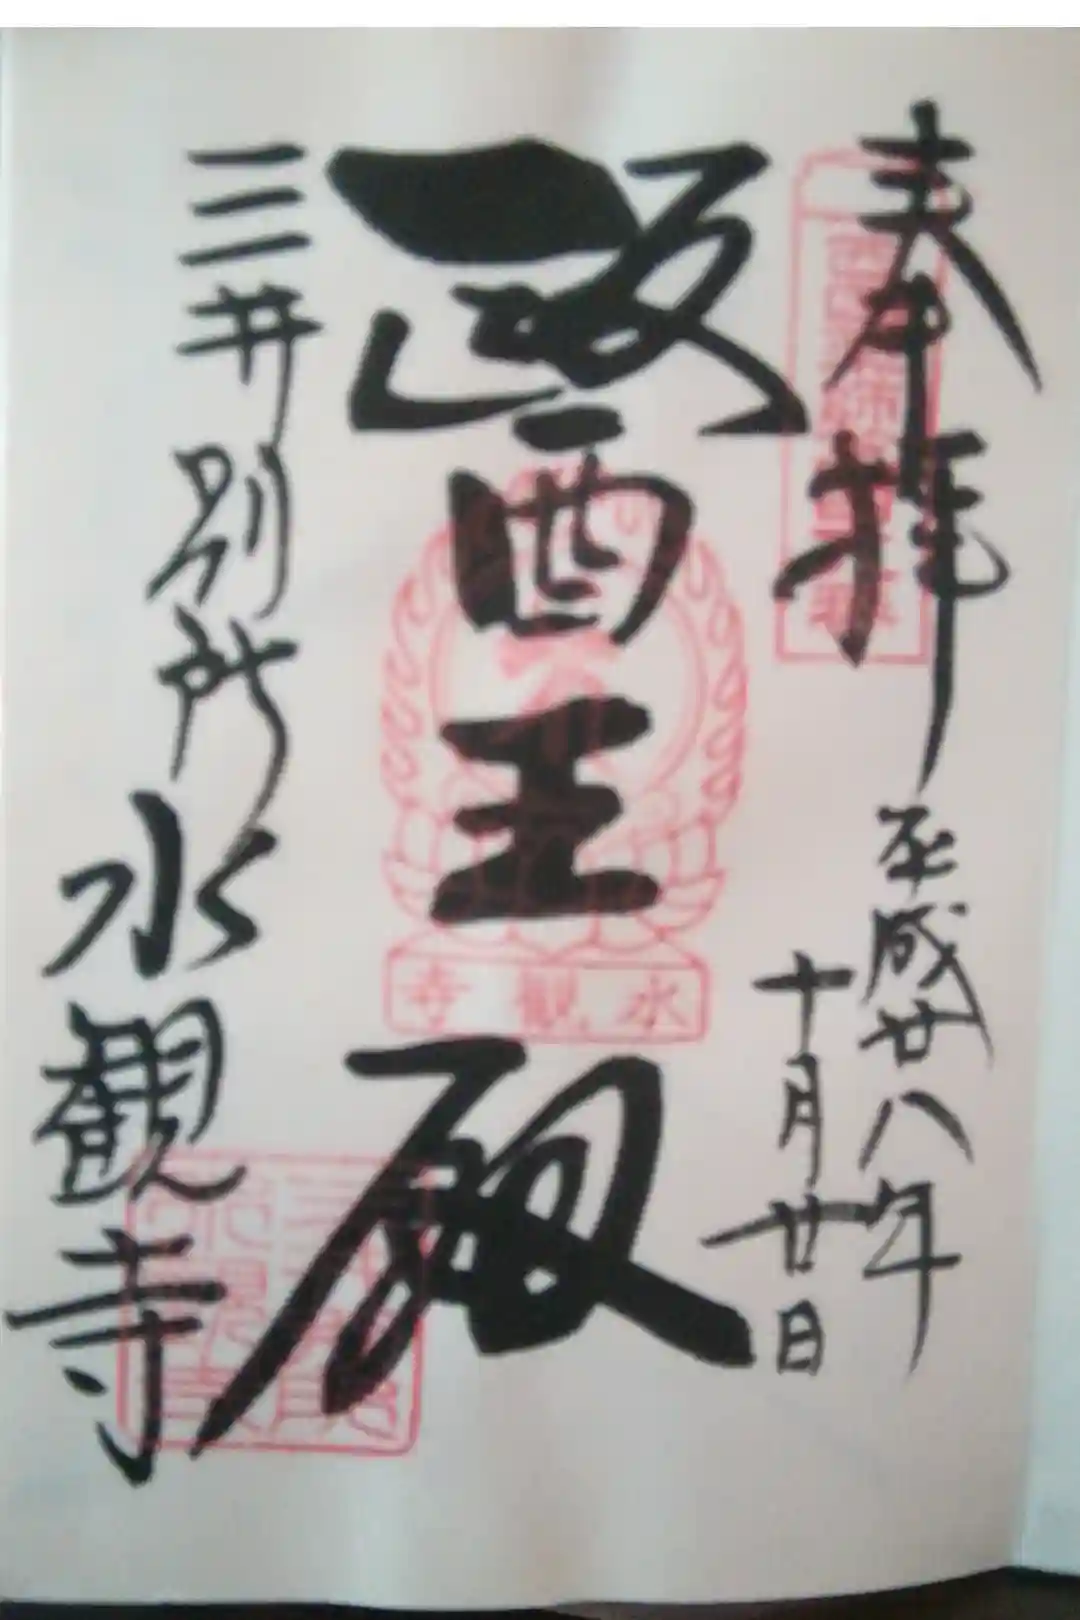 奉拝
平成廿八年
十月廿日
醫王殿
水觀寺
三井別所
水観寺